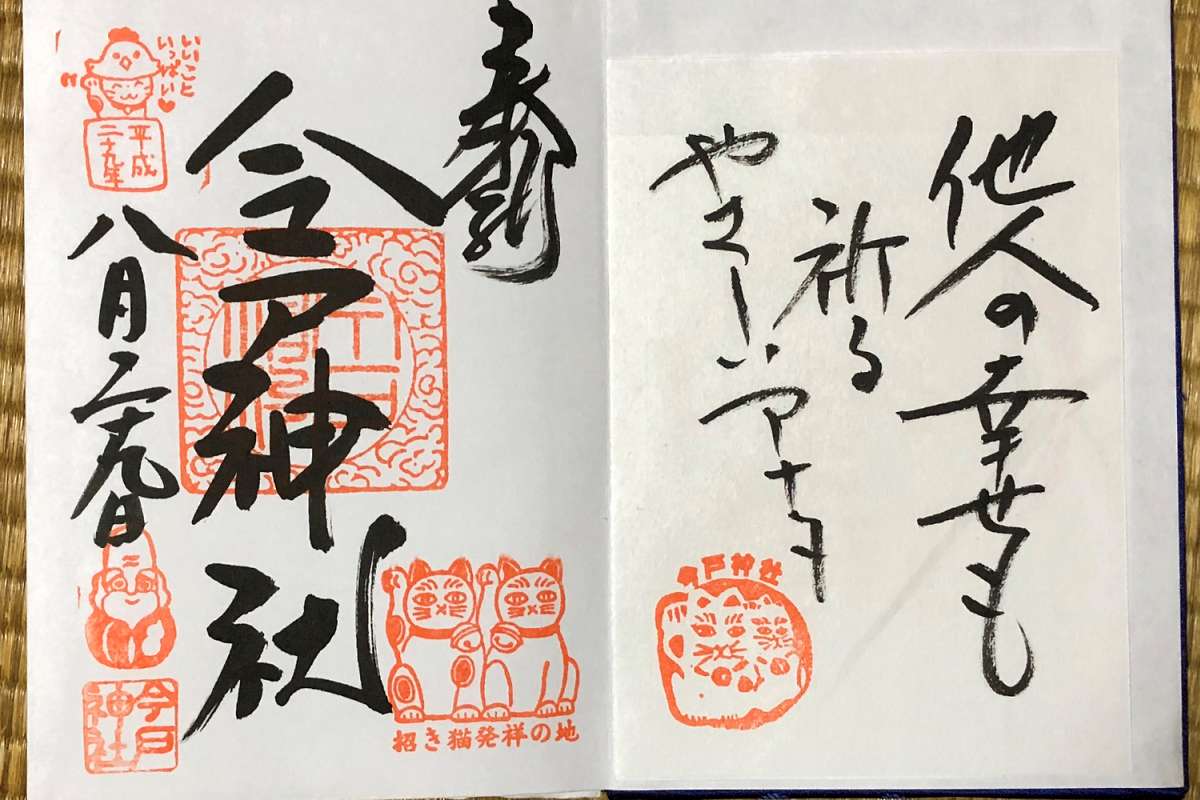 他人の幸せも
祈る
やさしいアナタ
今戸神社
奉拝
今戸神社
招き猫発祥の地
いいこと
いっぱい♡
平成
二十九年
八月二十九日
今戸
神社